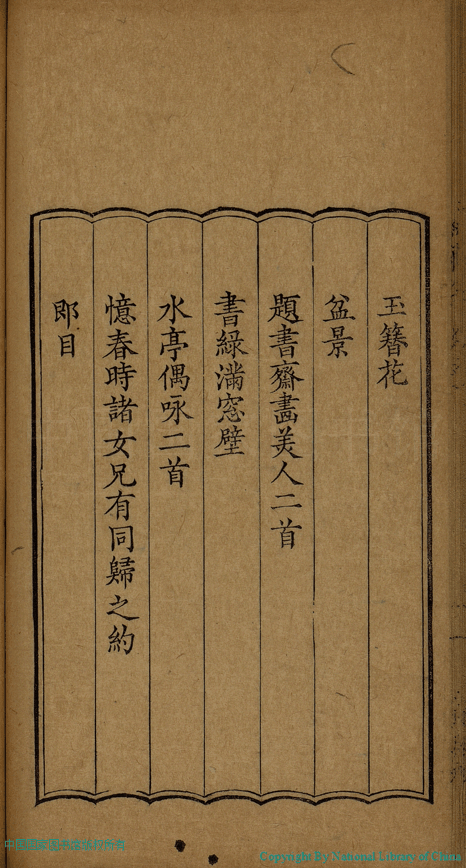 玉簪花
盆景
題書齋畫美人二首
書綠滿窓壁
水亭偶咏二首
憶春時諸女兄有同歸之約
即目
Copyright By National Library of China